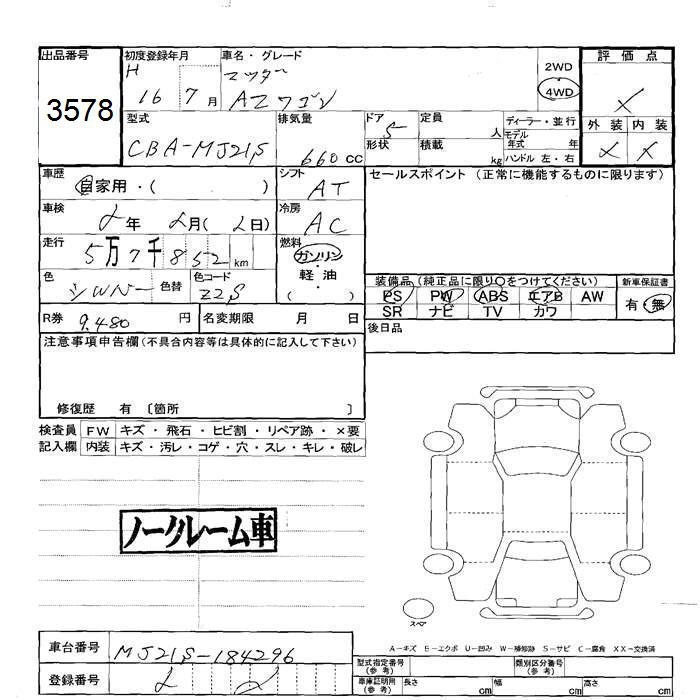 出品番号 初度登録年月 車名・グレード 評価点
3578 H 16 7月 マツダ AZワゴン 2WD 4WD ×
型式 排気量 ドア 定員 人 ディーラー・並行 外装 内装
CBA-MJ21S 660cc 5 形状 積載 kg モデル年式 年 ハンドル 左・右 × ×
車歴 自家用・( ) シフト AT セールスポイント(正常に機能するものに限ります)
車検 年 月( 日) 冷房 AC
走行 5万7千852km 燃料 ガソリン・軽油 ( )
色 シルバー 色替 色コード Z2S 装備品(純正品に限り○をつけてください) 新車保証書
PS PW ABS エアB AW 有・無
SR ナビ TV カワ
R券 9,480円 名変期限 月 日 後日品
注意事項申告欄(不具合内容等は具体的に記入して下さい)
修復歴 有 〔箇所 〕
検査員 FW キズ・飛石・ヒビ割・リペア跡・×要
記入欄 内装 キズ・汚レ・コゲ・穴・スレ・キレ・破レ
ノークレーム車
スペア
A-キズ E-エクボ U-凹み W-補修跡 S-サビ C-腐食 XX-交換済
車台番号 MJ21S-184296
登録番号
型式指定番号(参考) 類別区分番号(参考)
車庫証明用(参考) 長さ cm 幅 cm 高さ cm